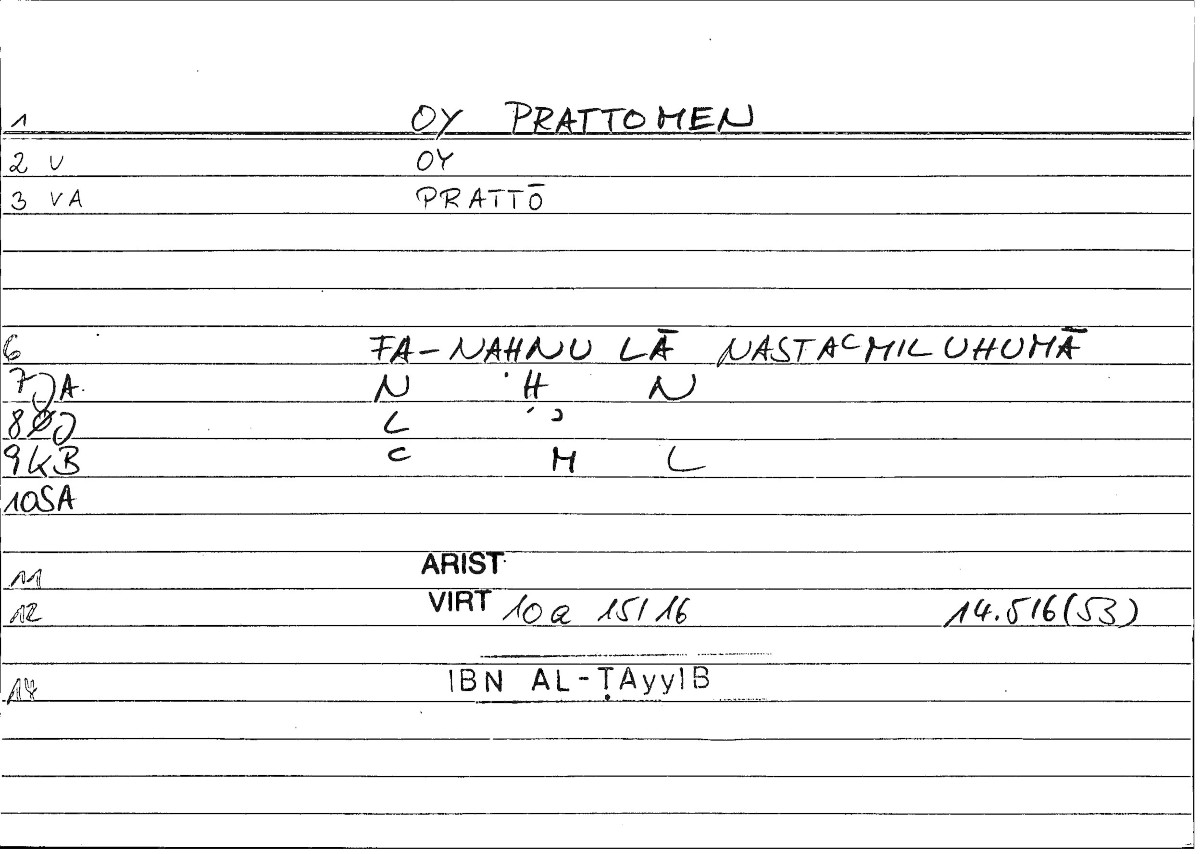 1 OY PRATTOMEN
2 V OY
3 VA PRATTŌ
6 FA-NAHNU LĀ NASTAᶜMILUHUMĀ
7 JA. N Ḣ N
8 ØJ L ʾ
9 KB ᶜ M L
10 SA
11 ARIST
12 VIRT 10a 15/16 14.516(53)
14 IBN AL-ṬAyyIB